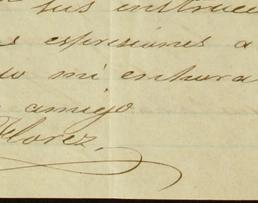 sus instruc
s espresiones a
do mi enhora
amigo
Florez.